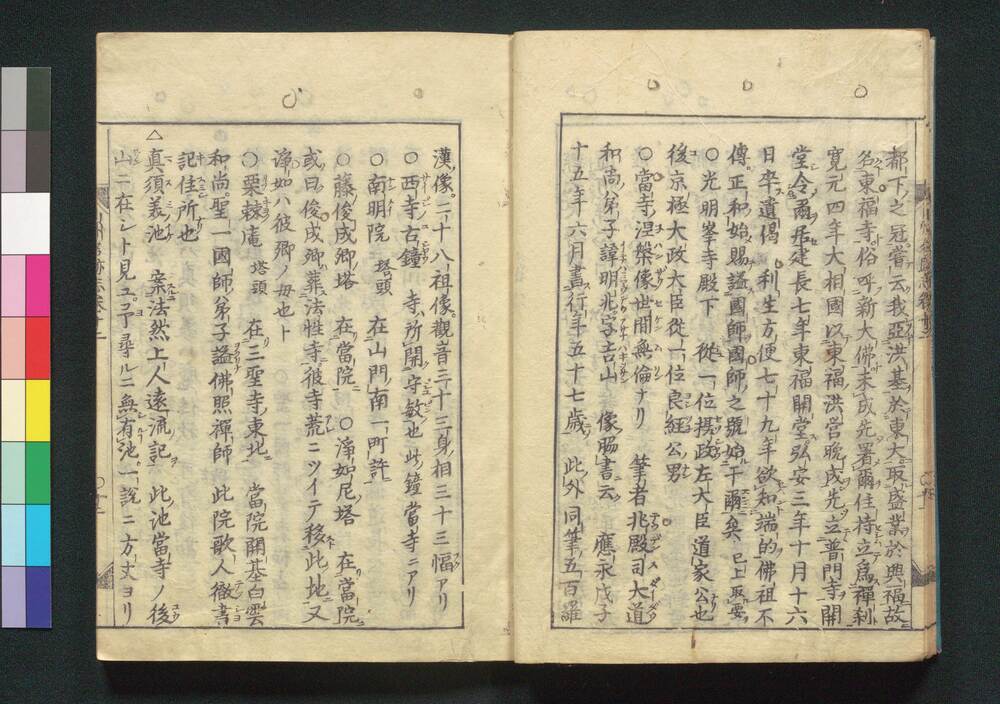 都下之冠嘗云我亞洪基於東大取盛業於興福故
名東福寺俗呼新大佛未成先署爾住持立爲禪刹
寛元四年大相國以東福洪営晩成先立普門寺開
堂令爾居建長七年東福開堂弘安三年十月十六
日卒遺偈 利生方便七十九年欲知端的佛祖不
傳正和始賜謚國師國師之號始于爾矣 已上取要
○光明峯寺殿下 從一位摂政左大臣道家公也
後京極大政大臣從一位良経公男
○當寺涅槃像世間無倫ナリ 筆者兆殿司大道
和尚弟子諱明兆字吉山 像脇書云 應永戊子
十五年六月畫行年五十七歳 此外同筆五百羅
漢像二十八祖像觀音三十三身相三十三幅アリ
○西寺古鐘 寺所開守敏也此鐘當寺ニアリ
○南明院 塔頭 在山門南一町許
○藤俊成卿塔 在當院 ○浄如尼塔 在當院
或曰俊成卿葬法性寺彼寺荒ニツイテ移此地又
浄如ハ彼卿ノ母也ト
○栗棘庵 塔頭 在三聖寺東北 當院開基白雲
和尚聖一國師弟子謚佛照禪師 此院歌人徹書
記住所也
△真須美池 案法然上人遠流記 此池當寺ノ後
山ニ在シト見ユ予尋ルニ無有池一說ニ方丈ヨリ